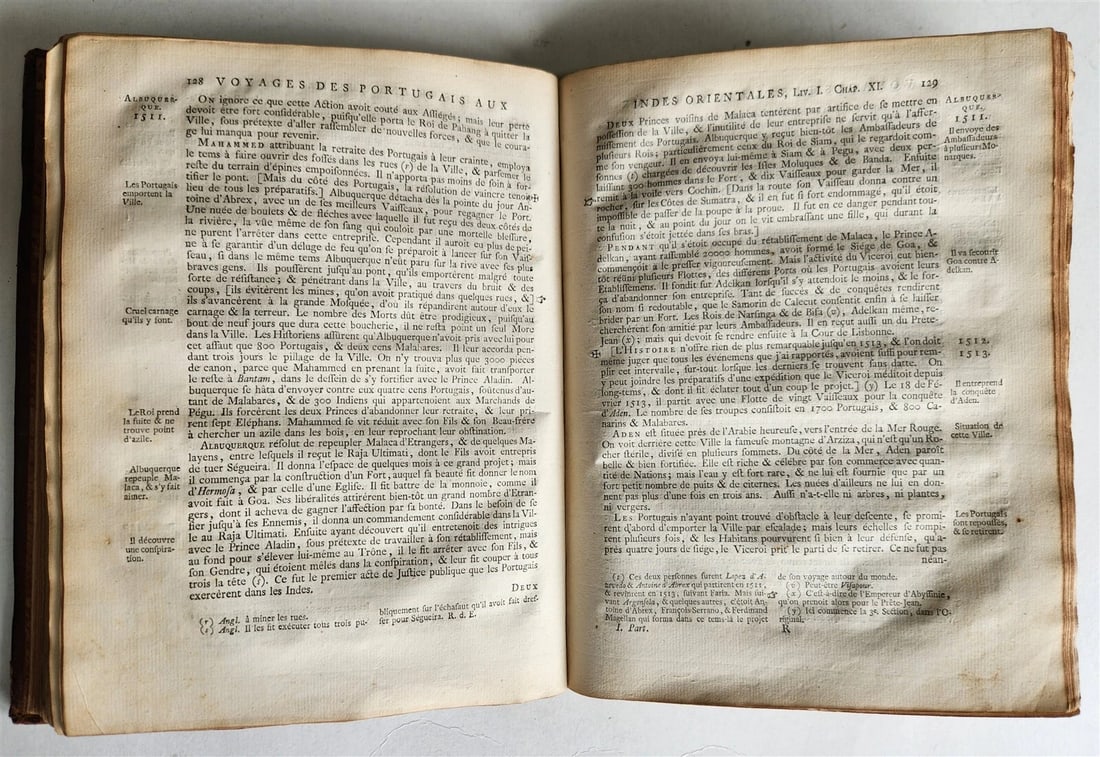 128 VOYAGES DES PORTUGAIS AUX
ALBUQUER-
QUE.
1511.
ON ignore ce que cette Action avoit couté aux Assiégés; mais leur perte
devoit être fort considérable, puisqu'elle porta le Roi de Pahang à quitter la
Ville, sous prétexte d'aller rassembler de nouvelles forces, & que le coura-
ge lui manqua pour revenir.
MAHAMMED attribuant la retraite des Portugais à leur crainte, employa
le tems à faire ouvrir des fossés dans les rues (r) de la Ville, & parsemer le
reste du terrain d'épines empoisonnées. Il n'apporta pas moins de soin à for-
tifier le pont. [Mais du côté des Portugais, la résolution de vaincre tenoit
lieu de tous les préparatifs.] Albuquerque détacha dès la pointe du jour An-
toine d'Abrex, avec un de ses meilleurs Vaisseaux, pour regagner le Port.
Les Portugais
emportent la
Ville.
Une nuée de boulets & de fléches avec laquelle il fut reçu des deux côtés de
la rivière, la vûe même de son sang qui couloit par une mortelle blessure,
ne purent l'arrêter dans cette entreprise. Cependant il auroit eu plus de pei-
ne à se garantir d'un déluge de feu qu'on se préparoit à lancer sur son Vais-
seau, si dans le même tems Albuquerque n'eût paru sur la rive avec ses plus
braves gens. Ils poussèrent jusqu'au pont, qu'ils emportèrent malgré toute
sorte de résistance; & pénétrant dans la Ville, au travers du bruit & des
coups, [ils évitèrent les mines, qu'on avoit pratiqué dans quelques rues, &]
ils s'avancèrent à la grande Mosquée, d'où ils répandirent autour d'eux le
Cruel carnage
qu'ils y font.
carnage & la terreur. Le nombre des Morts dût être prodigieux, puisqu'au
bout de neuf jours que dura cette boucherie, il ne resta point un seul More
dans la Ville. Les Historiens assûrent qu'Albuquerque n'avoit pris avec lui pour
cet assaut que 800 Portugais, & deux cens Malabares. Il leur accorda pen-
dant trois jours le pillage de la Ville. On n'y trouva plus que 3000 pièces
de canon, parce que Mahammed en prenant la fuite, avoit fait transporter
le reste à Bantam, dans le dessein de s'y fortifier avec le Prince Aladin. Al-
buquerque se hâta d'envoyer contre eux quatre cens Portugais, soûtenus d'au-
tant de Malabares, & de 300 Indiens qui appartenoient aux Marchands de
Pégu. Ils forcèrent les deux Princes d'abandonner leur retraite, & leur pri-
Le Roi prend
la fuite & ne
trouve point
d'azile.
rent sept Eléphans. Mahammed se vit réduit avec son Fils & son Beau-frère
à chercher un azile dans les bois, en leur reprochant leur obstination.
ALBUQUERQUE résolut de repeupler Malaca d'Etrangers, & de quelques Ma-
layens, entre lesquels il reçut le Raja Ultimati, dont le Fils avoit entrepris
Albuquerque
repeuple Ma-
laca, & s'y fait
aimer.
de tuer Ségueira. Il donna l'espace de quelques mois à ce grand projet; mais
il commença par la construction d'un Fort, auquel sa beauté fit donner le nom
d'Hermosa, & par celle d'une Eglise. Il fit battre de la monnoie, comme il
avoit fait à Goa. Ses libéralités attirèrent bien-tôt un grand nombre d'Etran-
gers, dont il acheva de gagner l'affection par sa bonté. Dans le besoin de se
fier jusqu'à ses Ennemis, il donna un commandement considérable dans la Vil-
le au Raja Ultimati. Ensuite ayant découvert qu'il entretenoit des intrigues
Il découvre
une conspira-
tion.
avec le Prince Aladin, sous prétexte de travailler à son rétablissement, mais
au fond pour s'élever lui-même au Trône, il le fit arrêter avec son Fils, &
son Gendre, qui étoient mêlés dans la conspiration, & leur fit couper à tous
trois la tête (s). Ce fut le premier acte de Justice publique que les Portugais
exercèrent dans les Indes.
DEUX
(r) Angl. à miner les rues.
(s) Angl. Il les fit exécuter tous trois pu-
bliquement sur l'échafaut qu'il avoit fait dres-
ser pour Ségueira. R. d. E.
INDES ORIENTALES, LIV. I. CHAP. XI. 129
DEUX Princes voisins de Malaca tentèrent par artifice de se mettre en
possession de la Ville, & l'inutilité de leur entreprise ne servit qu'à l'affer-
missement des Portugais. Albuquerque y reçut bien-tôt les Ambassadeurs de
plusieurs Rois; particulièrement ceux du Roi de Siam, qui le regardoit com-
me son vengeur. Il en envoya lui-même à Siam & à Pegu, avec deux per-
sonnes (t) chargées de découvrir les Isles Moluques & de Banda. Ensuite
laissant 300 hommes dans le Fort, & dix Vaisseaux pour garder la Mer, il
remit à la voile vers Cochin. [Dans la route son Vaisseau donna contre un
rocher, sur les Côtes de Sumatra, & il en fut si fort endommagé, qu'il étoit
impossible de passer de la poupe à la proue. Il fut en ce danger pendant tou-
te la nuit, & au point du jour on le vit embrassant une fille, qui durant la
confusion s'étoit jettée dans ses bras.]
ALBUQUER-
QUE.
1511.
Il envoye des
Ambassadeurs
à plusieurs Mo-
narques.
PENDANT qu'il s'étoit occupé du rétablissement de Malaca, le Prince A-
delkan, ayant rassemblé 20000 hommes, avoit formé le Siége de Goa, &
commençoit à le presser vigoureusement. Mais l'activité du Viceroi eut bien-
tôt réuni plusieurs Flottes, des différens Ports où les Portugais avoient leurs
Etablissemens. Il fondit sur Adelkan lorsqu'il s'y attendoit le moins, & le for-
ça d'abandonner son entreprise. Tant de succès & de conquêtes rendirent
son nom si redoutable, que le Samorin de Calecut consentit enfin à se laisser
brider par un Fort. Les Rois de Narsinga & de Bisa (u), Adelkan même, re-
cherchèrent son amitié par leurs Ambassadeurs. Il en reçut aussi un du Prete-
Jean (x); mais qui devoit se rendre ensuite à la Cour de Lisbonne.
Il va secourir
Goa contre A-
delkan.
[L'HISTOIRE n'offre rien de plus remarquable jusqu'en 1513, & l'on doit
même juger que tous les événemens que j'ai rapportés, avoient suffi pour rem-
plir cet intervalle, sur-tout lorsque les derniers se trouvent sans datte. On
y peut joindre les préparatifs d'une expédition que le Viceroi méditoit depuis
long-tems, & dont il fit éclater tout d'un coup le projet.] (y) Le 18 de Fé-
vrier 1513, il partit avec une Flotte de vingt Vaisseaux pour la conquête
d'Aden. Le nombre de ses troupes consistoit en 1700 Portugais, & 800 Ca-
narins & Malabares.
1512.
1513.
Il entreprend
la conquête
d'Aden.
ADEN est située près de l'Arabie heureuse, vers l'entrée de la Mer Rouge.
On voit derrière cette Ville la fameuse montagne d'Arziza, qui n'est qu'un Ro-
cher stérile, divisé en plusieurs sommets. Du côté de la Mer, Aden paroît
belle & bien fortifiée. Elle est riche & célébre par son commerce avec quan-
tité de Nations; mais l'eau y est fort rare, & ne lui est fournie que par un
fort petit nombre de puits & de citernes. Les nuées d'ailleurs ne lui en don-
nent pas plus d'une fois en trois ans. Aussi n'a-t-elle ni arbres, ni plantes,
ni vergers.
Situation de
cette Ville.
LES Portugais n'ayant point trouvé d'obstacle à leur descente, se promi-
rent d'abord d'emporter la Ville par escalade; mais leurs échelles se rompi-
rent plusieurs fois, & les Habitans pourvurent si bien à leur défense, qu'a-
près quatre jours de siége, le Viceroi prit le parti de se retirer. Ce ne fut pas
nean-
Les Portugais
sont repoussés,
& se retirent.
(t) Ces deux personnes furent Lopez d'A-
zevedo & Antoine d'Abrex qui partirent en 1511,
& revinrent en 1513, suivant Faria. Mais sui-
vant Argensola, & quelques autres, c'étoit An-
toine d'Abrex, François Serrano, & Ferdinand
Magellan qui forma dans ce tems-là le projet
de son voyage autour du monde.
(u) Peut-être Visapour.
(x) C'est-à-dire de l'Empereur d'Abyssinie,
qu'on prenoit alors pour le Prête-Jean.
(y) Ici commence la 3e. Section, dans l'O-
riginal.
I. Part.
R